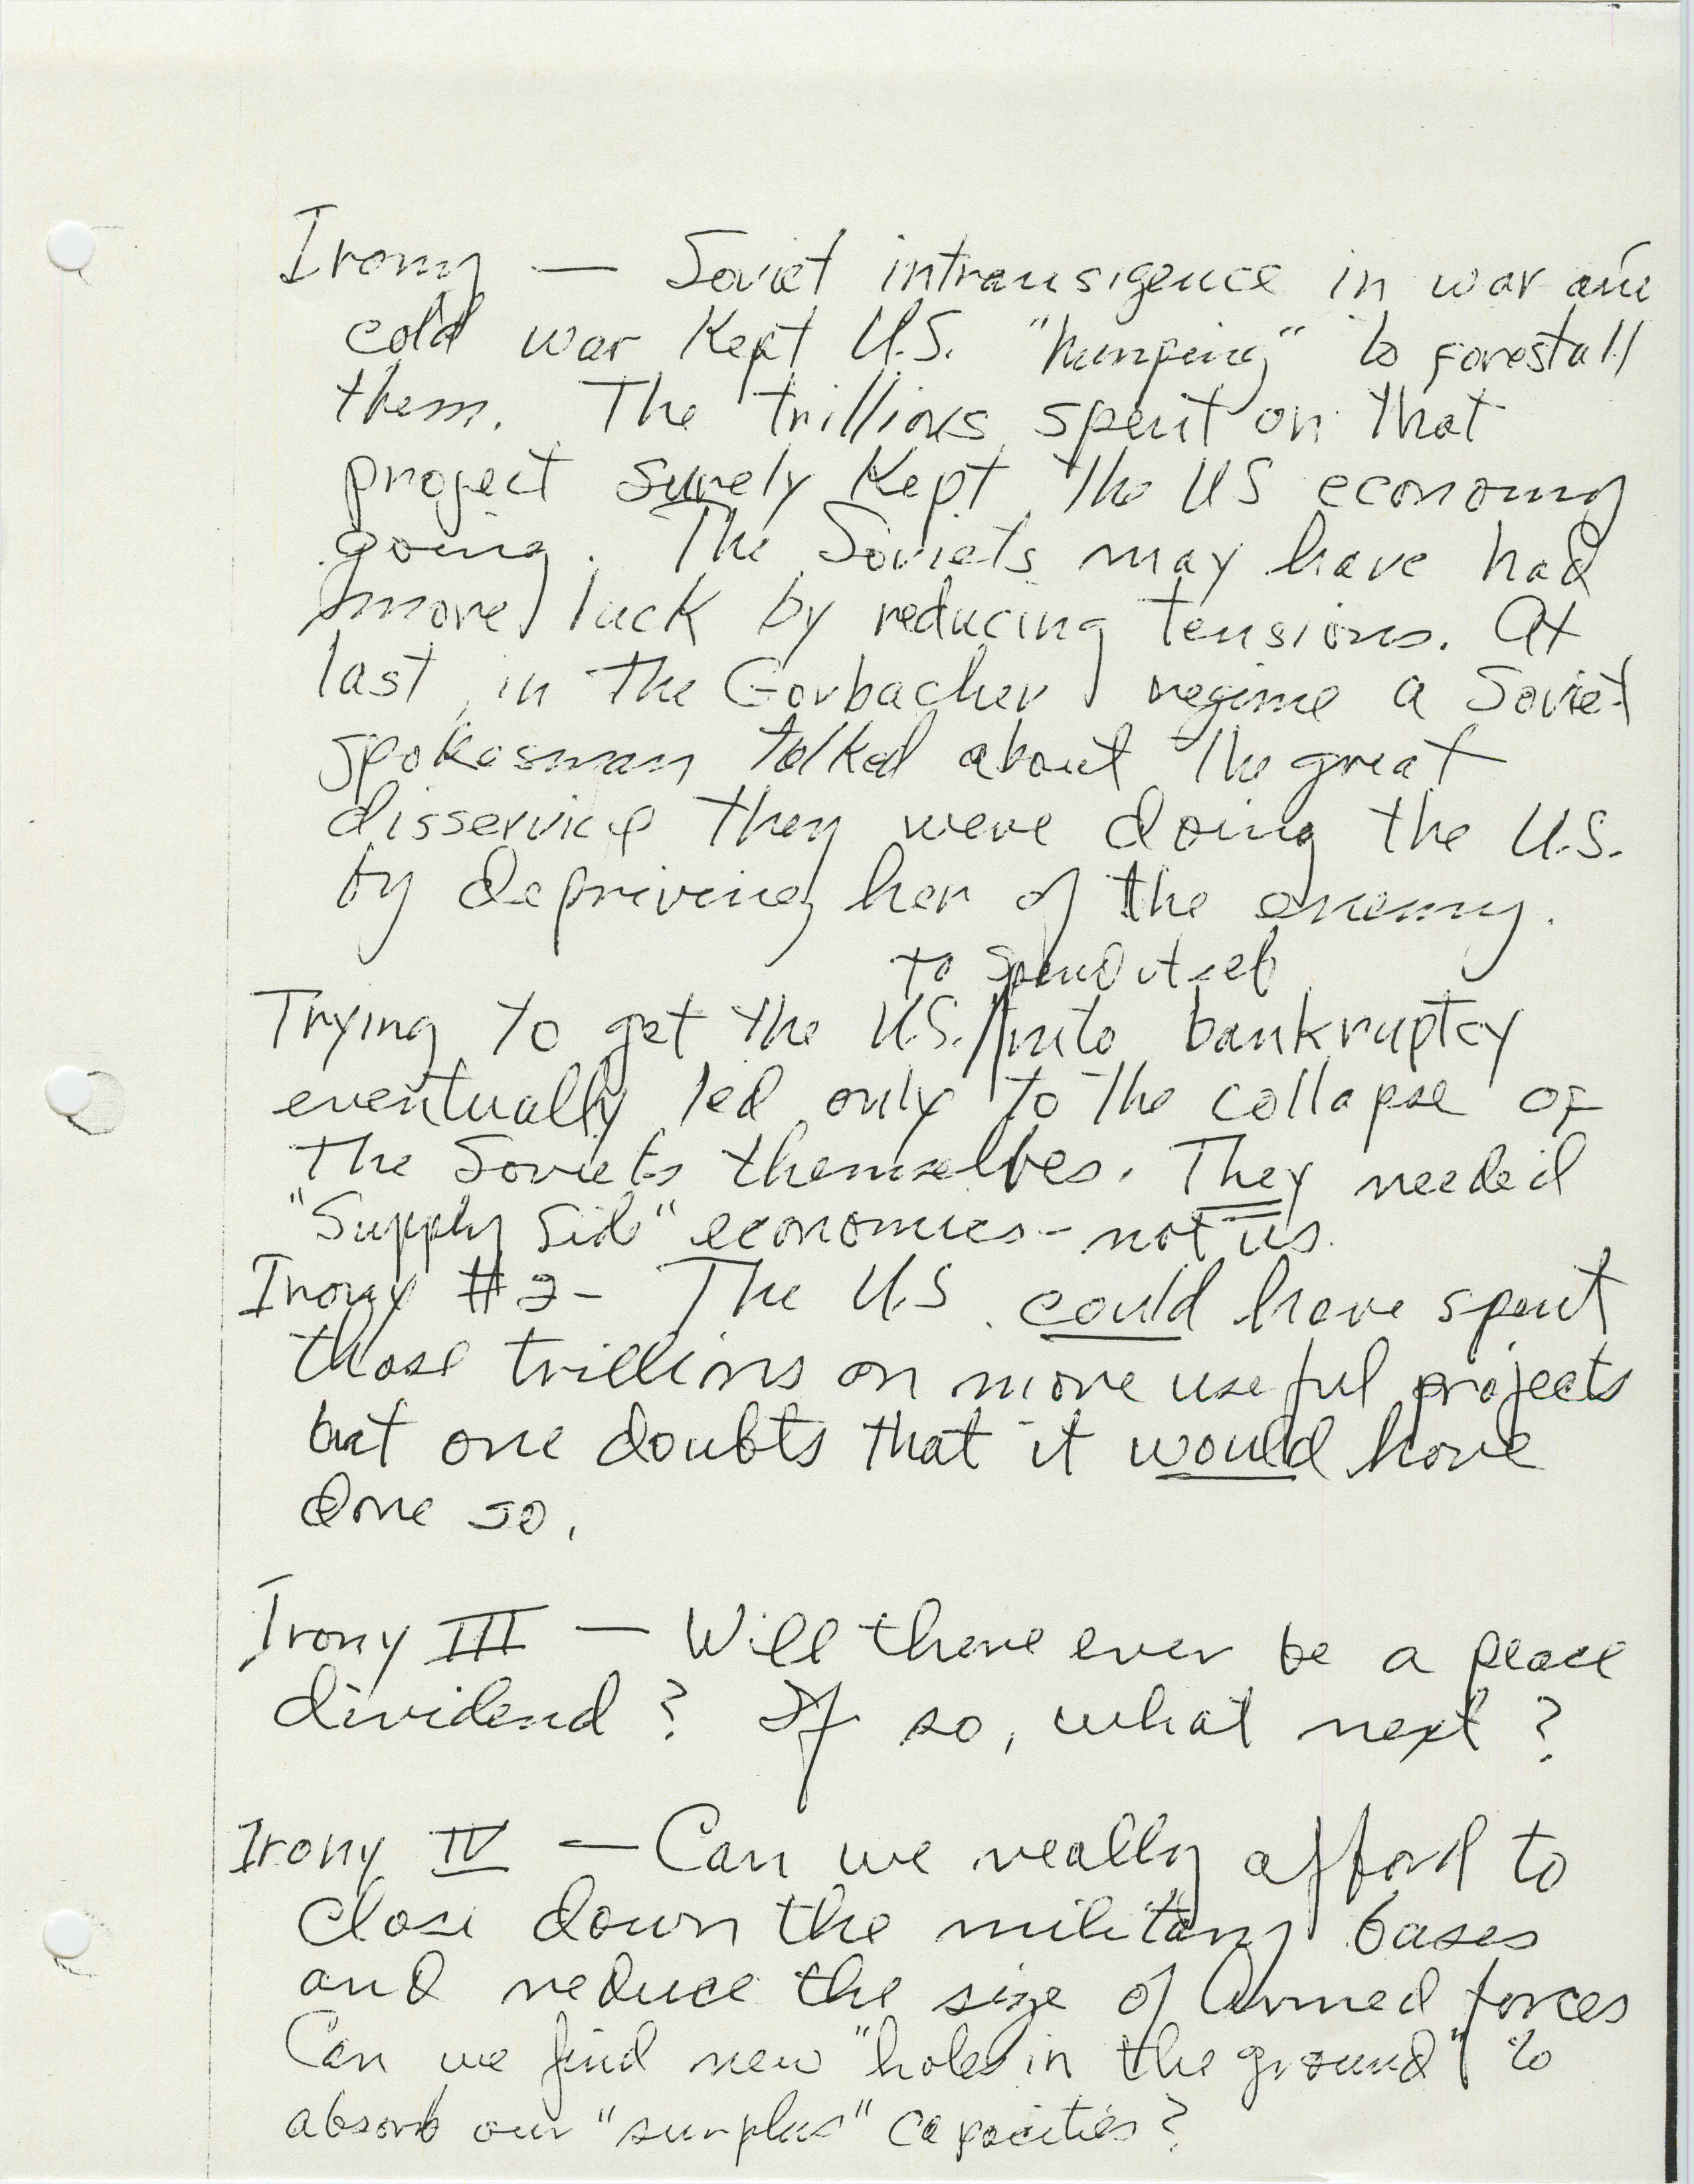 Irony — Soviet intransigence in war and
cold war kept U.S. "humping" to forestall
them. The trillions spent on that
project surely kept the US economy
going. The Soviets may have had
more luck by reducing tensions. At
last, in the Gorbachev regime a Soviet
spokesman talked about the great
disservice they were doing the U.S.
by depriving her of the enemy.
to spend itself
Trying to get the U.S. / into bankruptcy
eventually led only to the collapse of
the Soviets themselves. They needed
"Supply Side" economics - not us.
Irony #2 - The U.S. could have spent
those trillions on more useful projects
but one doubts that it would have
done so.
Irony III — Will there ever be a peace
dividend? If so, what next?
Irony IV — Can we really afford to
close down the military bases
and reduce the size of Armed forces
Can we find new "holes in the ground" to
absorb our "surplus" capacities?